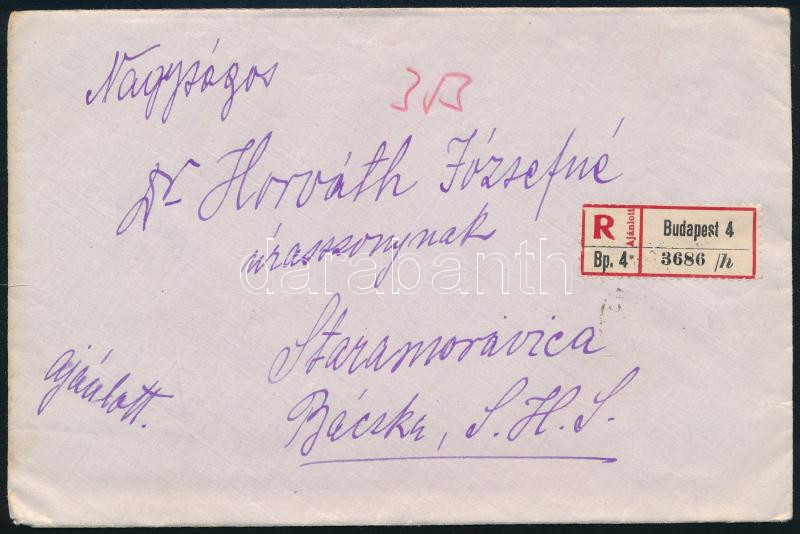 Nagyságos
Dr Horváth Józsefné
úrasszonynak
Staramoravica
Bácska, S.H.S.
ajánlott.
R
Ajánlott
Budapest 4
Bp. 4
3686 /h
darabanth